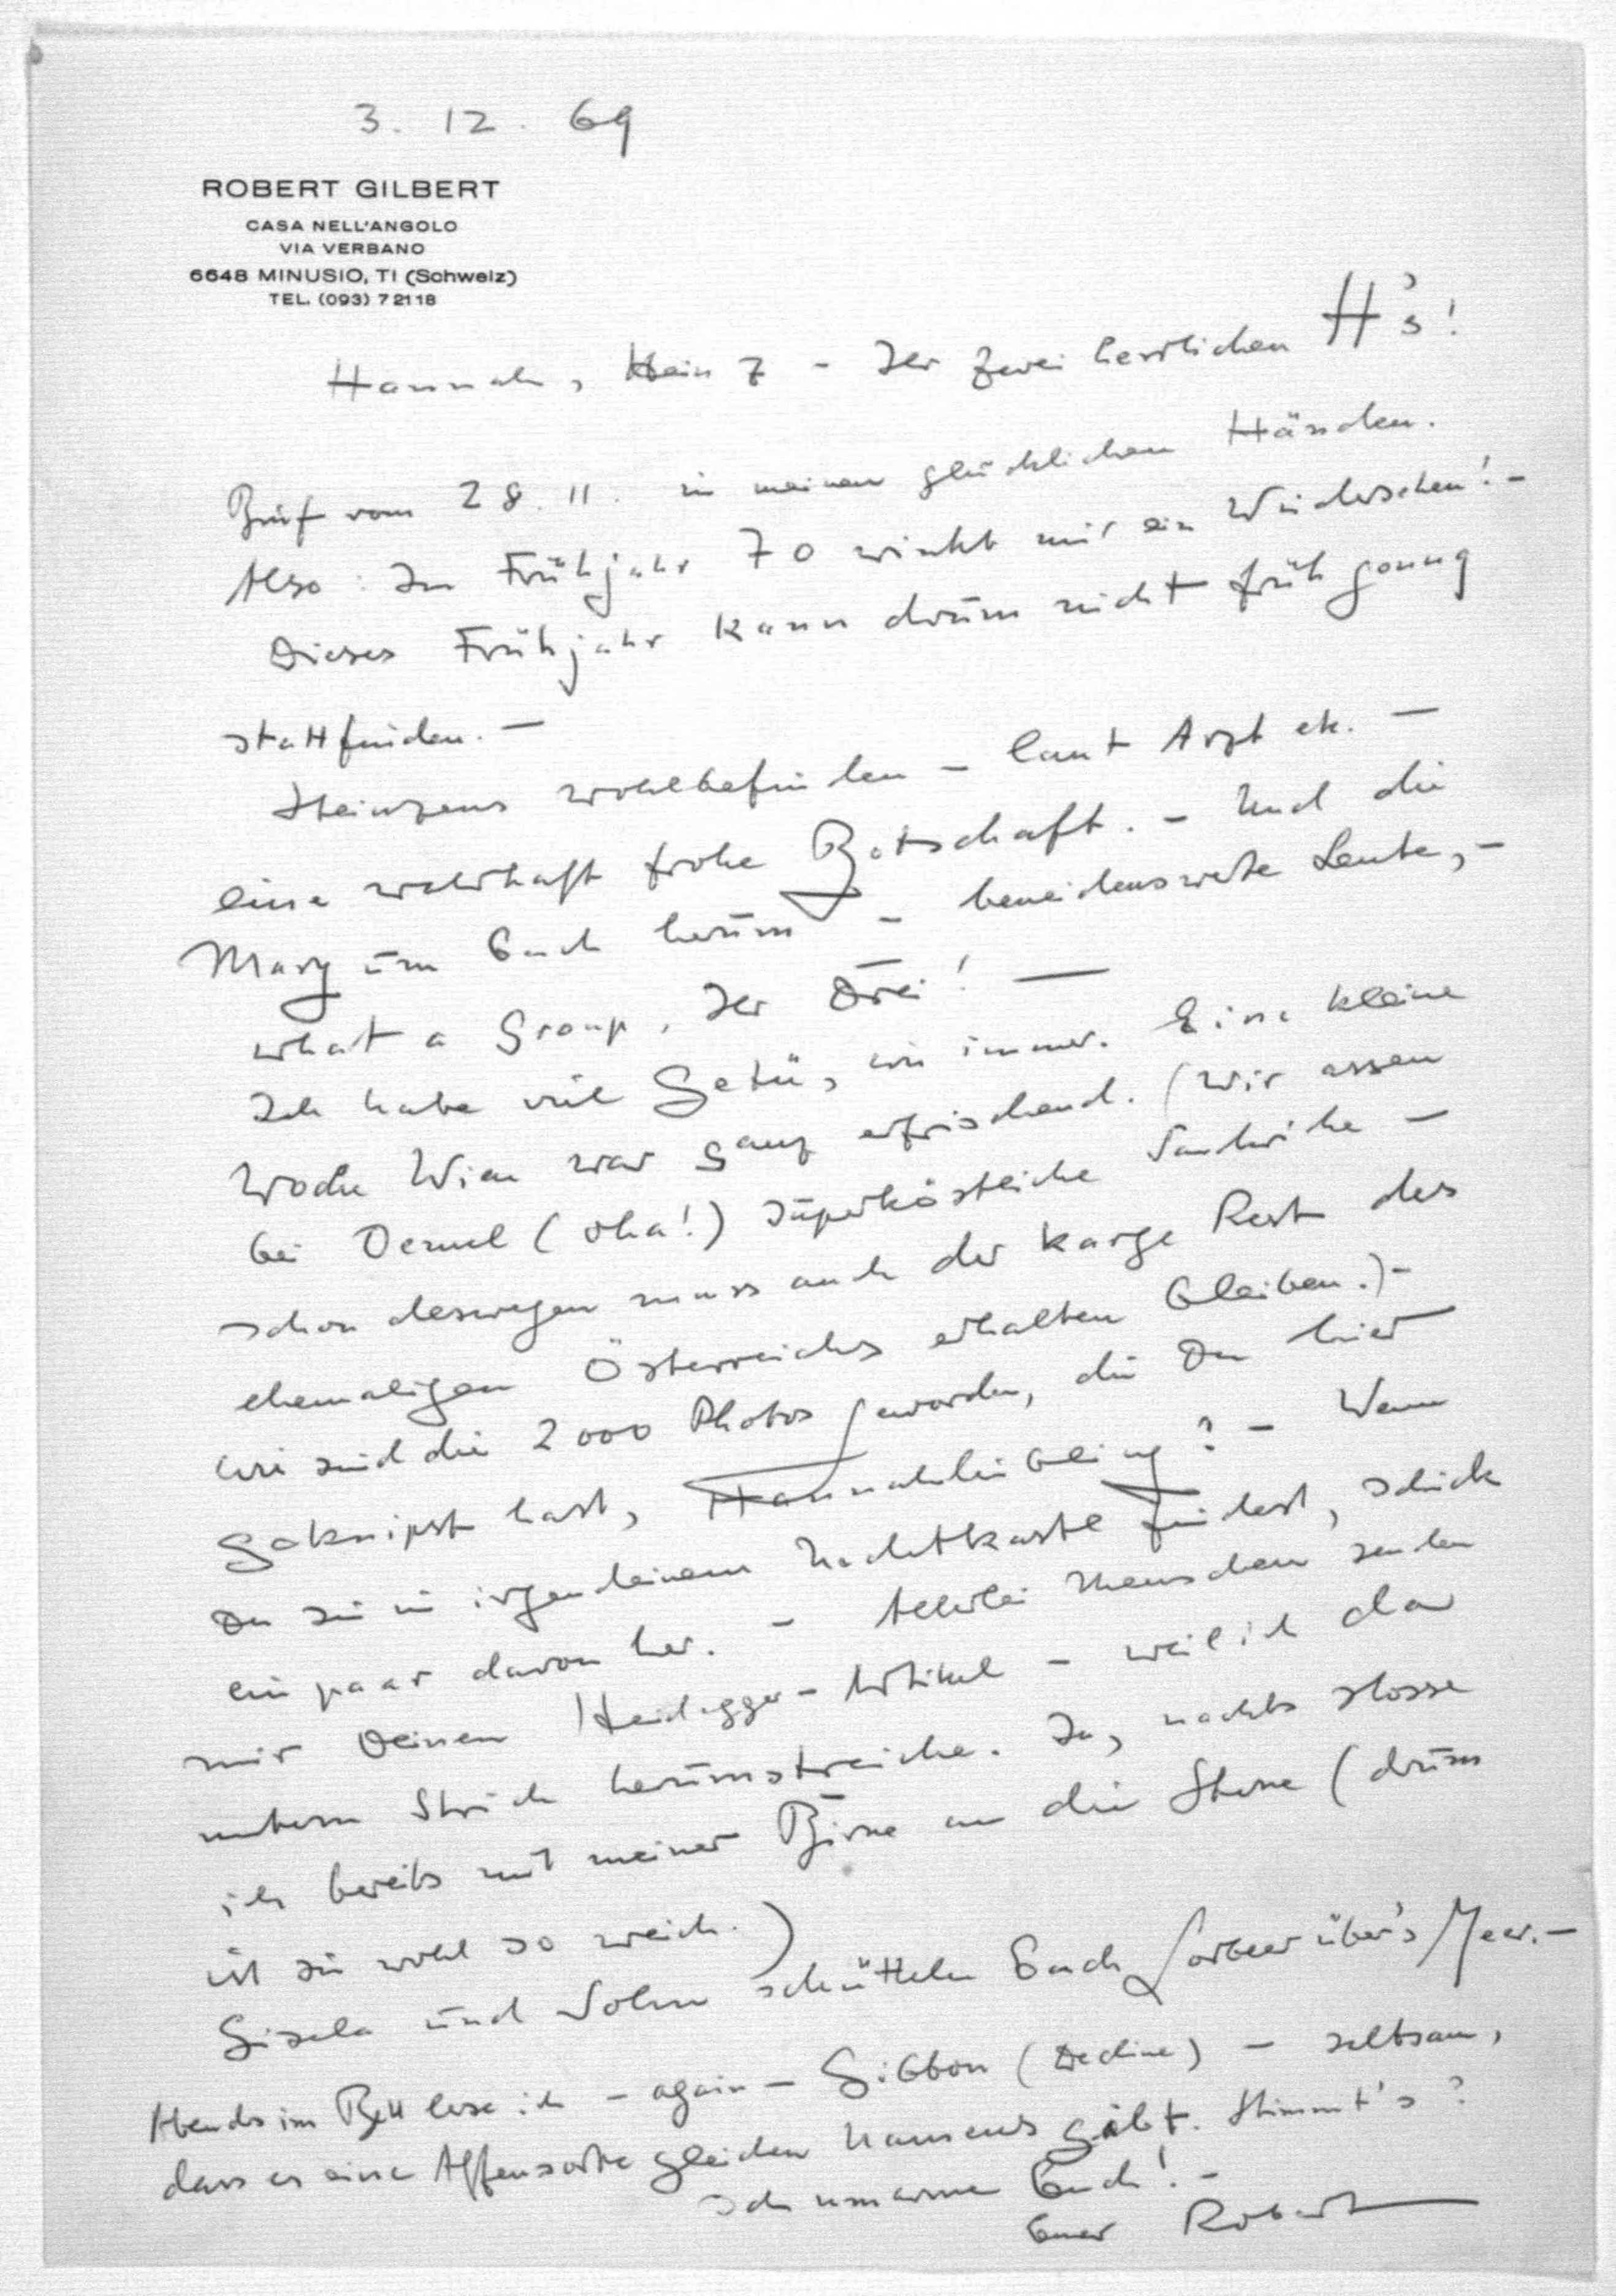 3. 12. 69
ROBERT GILBERT
CASA NELL'ANGOLO
VIA VERBANO
6648 MINUSIO, TI (Schweiz)
TEL. (093) 7 21 18
Hannah, Heinz - Ihr zwei herrlichen H's!
Brief vom 28. 11. in meinen glücklichen Händen.
Also: Im Frühjahr 70 winkt mir ein Wiedersehen! -
Dieses Frühjahr kann drum nicht früh genug
stattfinden. -
Heinzens Wohlbefinden - laut Arzt etc. -
eine wahrhaft frohe Botschaft. - Und die
Mary um Euch herum - beneidenswerte Leute, -
what a Group, Ihr Drei! -
Ich habe viel Getü, wie immer. Eine kleine
Woche Wien war ganz erfrischend. (Wir assen
bei Demel (oha!) superköstliche Sandwiche -
schon deswegen muss auch der karge Rest des
ehemaligen Österreichs erhalten bleiben.) -
Wie sind die 2000 Photos geworden, die Du hier
geknipst hast, Hannahliebling? - Wenn
Du sie in irgendeinem Nachtkastl findest, schick
ein paar davon her. - Allerlei Menschen senden
mir Deinen Heidegger-Artikel - weil ich da
unterm Strich herumstreiche. Ja, nachts stosse
ich bereits mit meiner Birne an die Sterne (drum
ist sie wohl so weich.)
Gisela und Sohn schütteln Euch Lorbeer über's Meer. -
Abends im Bett lese ich - again - Gibbon (Decline) - seltsam,
dass es eine Affensorte gleichen Namens gibt. Stimmt's?
Ich umarme Euch! -
Euer Robert